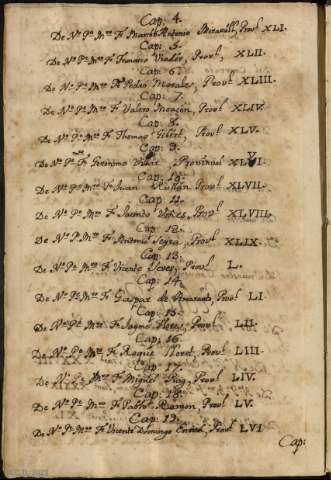 Cap. 4.
De Nº. Pe. Mro. F. Antonio Miravall, Provl XLI.
Cap: 5.
De Nº. Pe. Mro. F. Francisco Viader, Provl, XLII.
Cap: 6.
De Nº. Pe. Mro. F. Pedro Morales, Provl XLIII.
Cap: 7.
De Nº. Pe. Mro. F. Valero Monzon, Provl XLIV.
Cap: 8.
De Nº. Pe. Mro. F. Thomas Gibert, Provl XLV.
Cap: 9.
De Nº. Pe. F. Geronimo, Provincial XLVI.
Cap. 10.
De Nº. Pe. Mro. F. Juan Provl XLVII.
Cap. 11.
De Nº. Pe. Mro. F. Jacinto Provl XLVIII.
Cap: 12.
De Nº. Pe. Mro. F. Antonio Provl XLIX.
Cap: 13.
De Nº. Pe. Mro. F. Vicente Provl L.
Cap. 14.
De Nº. Pe. Mro. F. Gaspar de Provl LI.
Cap. 15.
De Nº. Pe. Mro. F. Jayme Provl LII.
Cap: 16.
De Nº. Pe. Mro. F. Roque Lloret, Provl LIII.
Cap: 17.
De Nº. Pe. Mro. F. Miguel Puig, Provl LIV.
Cap: 18.
De Nº. Pe. Mro. F. Pablo Ramon, Provl LV.
Cap: 19.
De Nº. Pe. Mro. F. Vicente Domingo Provl LVI
Cap: